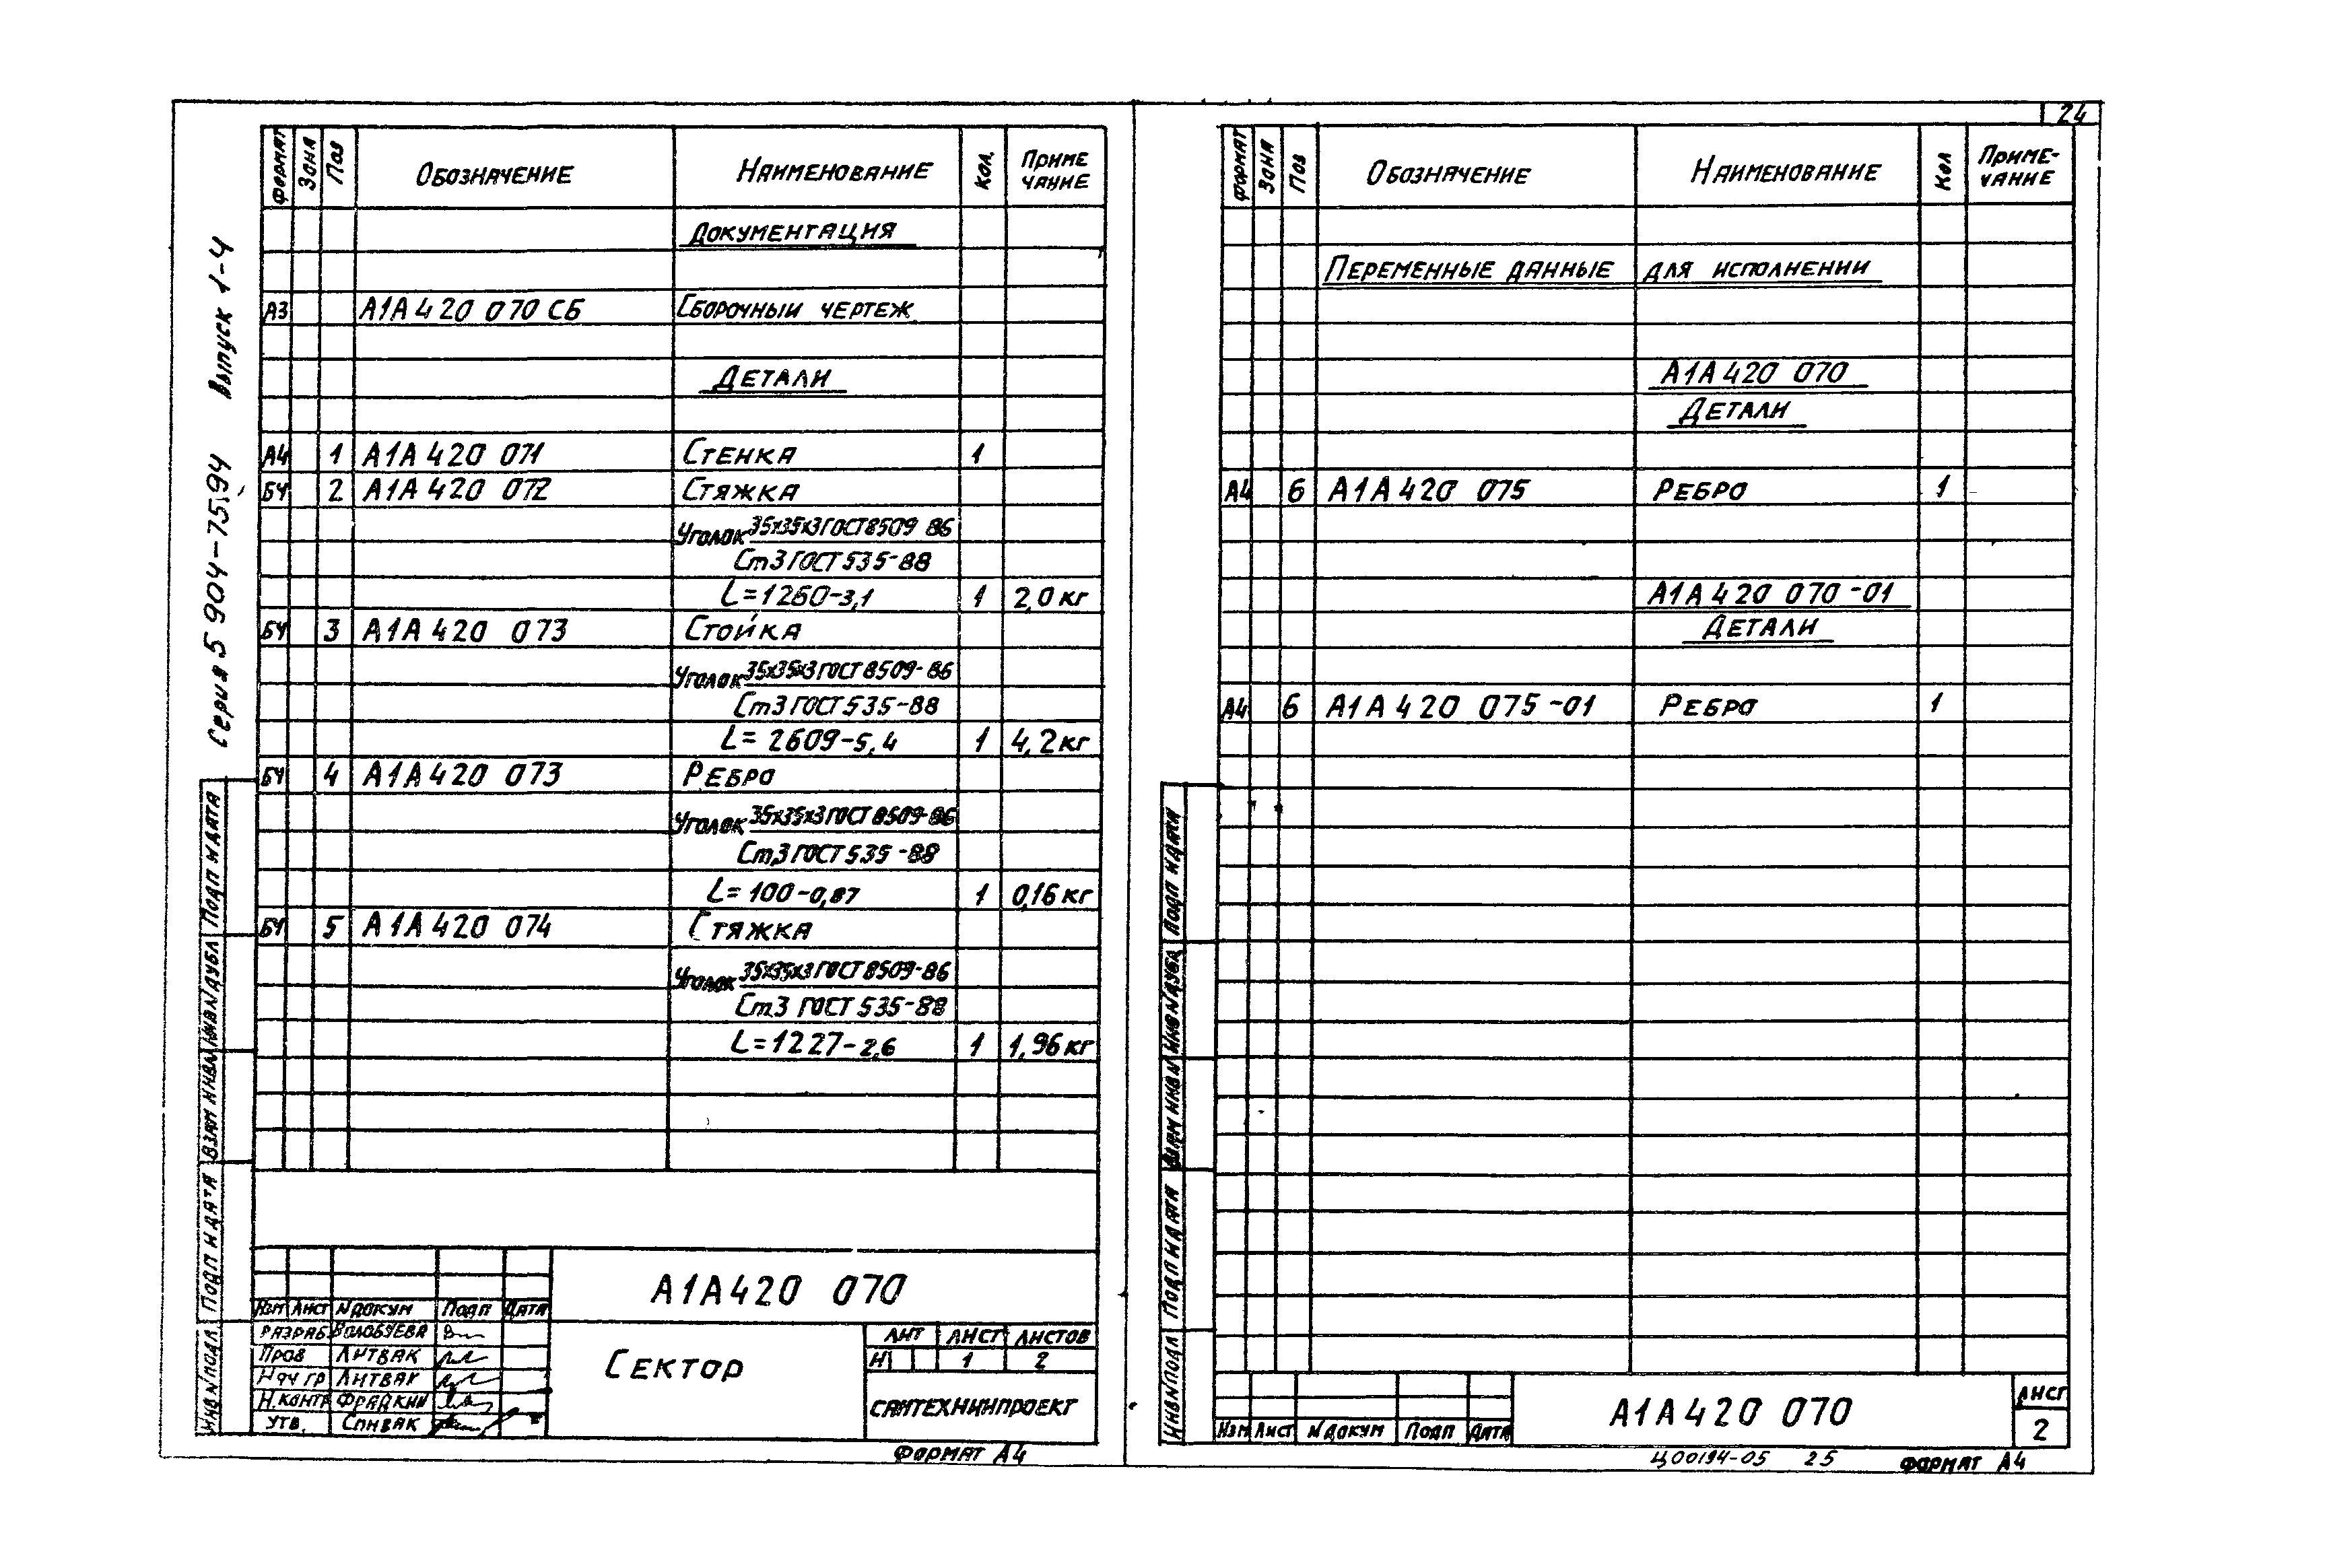 24
Серия 5 904-75.94 Выпуск 1-4
Формат Зона Поз Обозначение Наименование Кол. Приме чание
Документация
А3 А1А 420 070 СБ Сборочный чертеж
Детали
А4 1 А1А 420 071 Стенка 1
БЧ 2 А1А 420 072 Стяжка
Уголок 35х35х3 ГОСТ 8509 86
Ст3 ГОСТ 535-88
L=1260-3,1 1 2,0 кг
БЧ 3 А1А 420 073 Стойка
Уголок 35х35х3 ГОСТ 8509-86
Ст3 ГОСТ 535-88
L= 2609-5,4 1 4,2 кг
БЧ 4 А1А 420 073 Ребро
Уголок 35х35х3 ГОСТ 8509-86
Ст3 ГОСТ 535-88
L= 100-0,87 1 0,16 кг
БЧ 5 А1А 420 074 Стяжка
Уголок 35х35х3 ГОСТ 8509-86
Ст3 ГОСТ 535-88
L=1227-2,6 1 1,96 кг
Инв N подл Подп и дата Взам инв N Инв N дубл Подп и дата
А1А 420 070
Изм Лист N докум Подп Дата
Разраб Волобуева
Пров Литвак
Нач гр Литвак
Н.контр Фрадкин
Утв. Спивак
Сектор
Лит Лист Листов
И 1 2
Сантехниипроект
Формат А4
Формат Зона Поз Обозначение Наименование Кол Приме- чание
Переменные данные для исполнении
А1А 420 070
Детали
А4 6 А1А 420 075 Ребро 1
А1А 420 070-01
Детали
А4 6 А1А 420 075-01 Ребро 1
Инв N подл Подп и дата Взам инв N Инв N дубл Подп и дата
Изм Лист N докум Подп Дата
А1А 420 070
Лист
2
Ц00194-05 25 Формат А4